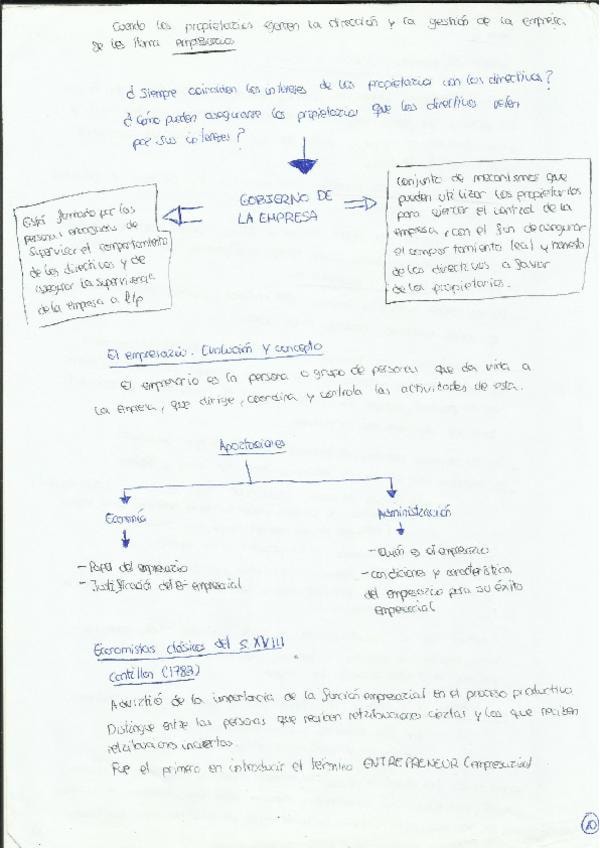 Cuando los propietarios ejercen la dirección y la gestión de la empresa,
se les llama empresarios
¿Siempre coinciden los intereses de los propietarios con los directivos?
¿Cómo pueden asegurarse los propietarios que los directivos velen
por sus intereses?
GOBIERNO DE
LA EMPRESA
Está formado por las
personas encargadas de
supervisar el comportamiento
de los directivos y de
asegurar la supervivencia
de la empresa a l/p
Conjunto de mecanismos que
pueden utilizar los propietarios
para ejercer el control de la
empresa, con el fin de asegurar
el comportamiento leal y honesto
de los directivos a favor
de los propietarios.
El empresario. Evolución y concepto
El empresario es la persona o grupo de personas que da vida a
la empresa, que dirige, coordina y controla las actividades de esta.
Aportaciones
Economía
- Papel del empresario
- Justificación del Bº empresarial
Administración
- Quién es el empresario
- condiciones y característica
del empresario para su éxito
empresarial
Economistas clásicos del s. XVIII
Cantillon (1783)
Advirtió de la importancia de la función empresarial en el proceso productivo
Distingue entre las personas que reciben retribuciones ciertas y los que reciben
retribuciones inciertas.
Fue el primero en introducir el término ENTREPRENEUR (empresario)
10